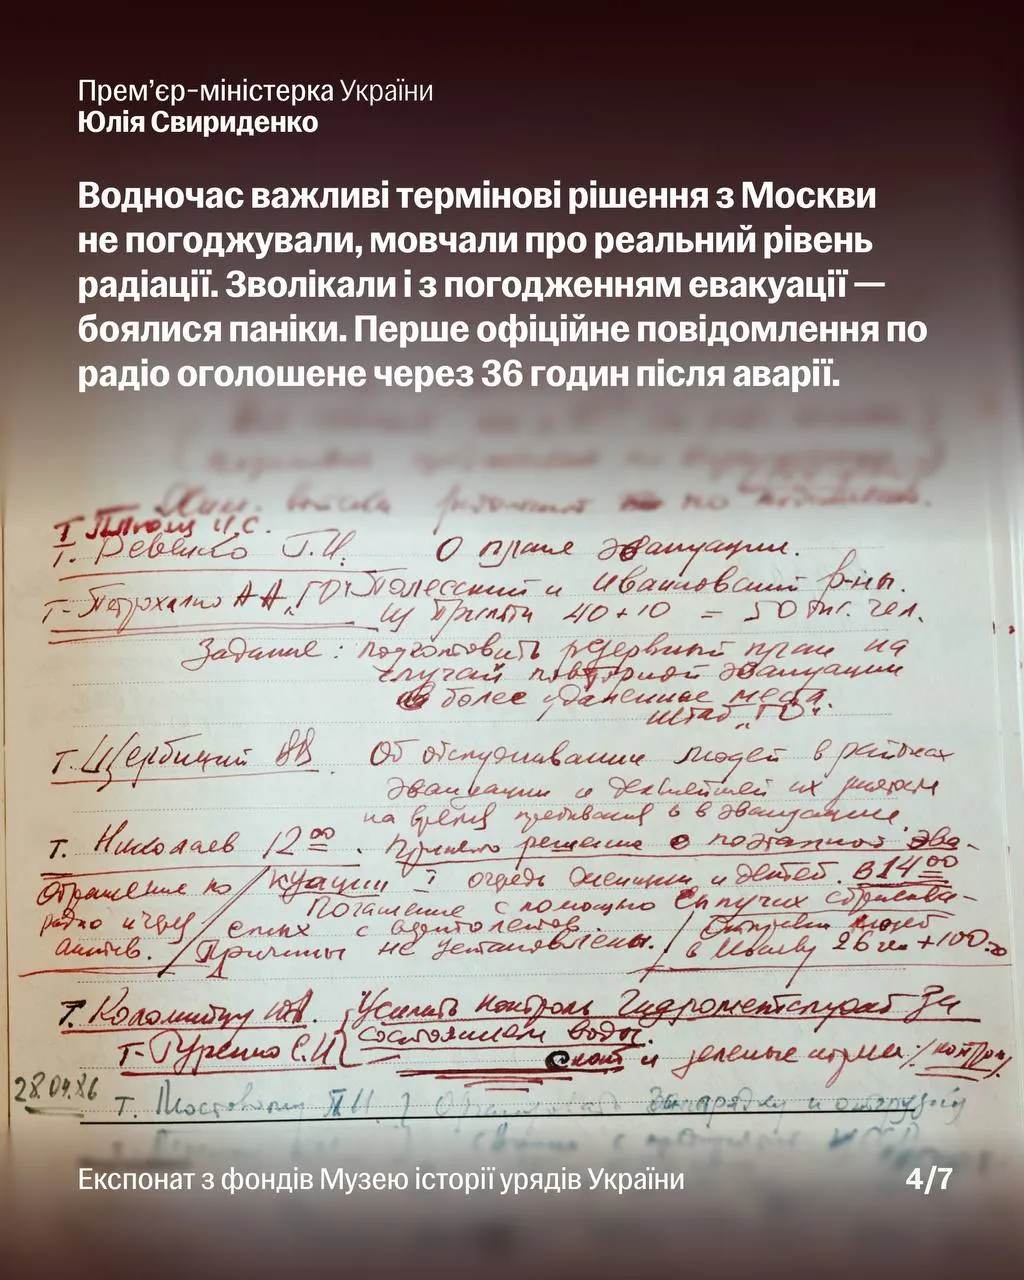 Прем’єр-міністерка України
Юлія Свириденко
Водночас важливі термінові рішення з Москви
не погоджували, мовчали про реальний рівень
радіації. Зволікали і з погодженням евакуації —
боялися паніки. Перше офіційне повідомлення по
радіо оголошене через 36 годин після аварії.
Хим. войска работают по
Т. Плющ И.С.
Т. Ревенко Г.И. О эвакуации.
Т. АА "ГО" Полесский и Иванковский р-ны.
Из Припяти 40+10 = 50 тыс. чел.
Задание: подготовить резервный план на
случай повторной эвакуации
в более удаленные места.
штаб "ГО".
т. Щербицкий ВВ Об обслуживании людей в районах
эвакуации и дальнейшей их
на время пребывания в эвакуации.
т. Николаев 12⁰⁰. Принято решение о поэтапной эва-
куации I очередь женщины и детей. в 14⁰⁰
Обращение по
радио и через
актив.
Погашение с помощью сыпучих сбрасыва-
емых с вертолетов.
Причины не установлены.
Отправки людей
в Москву 26 + 100
т. Коломийцу ЮА. Усилить контроль Гидрометслужб за
т. Гуренко С.И. состоянием воды.
Скот и зеленые корма /контроль/
28.04.86
т. Мостовому П.И.
Експонат з фондів Музею історії урядів України
4/7